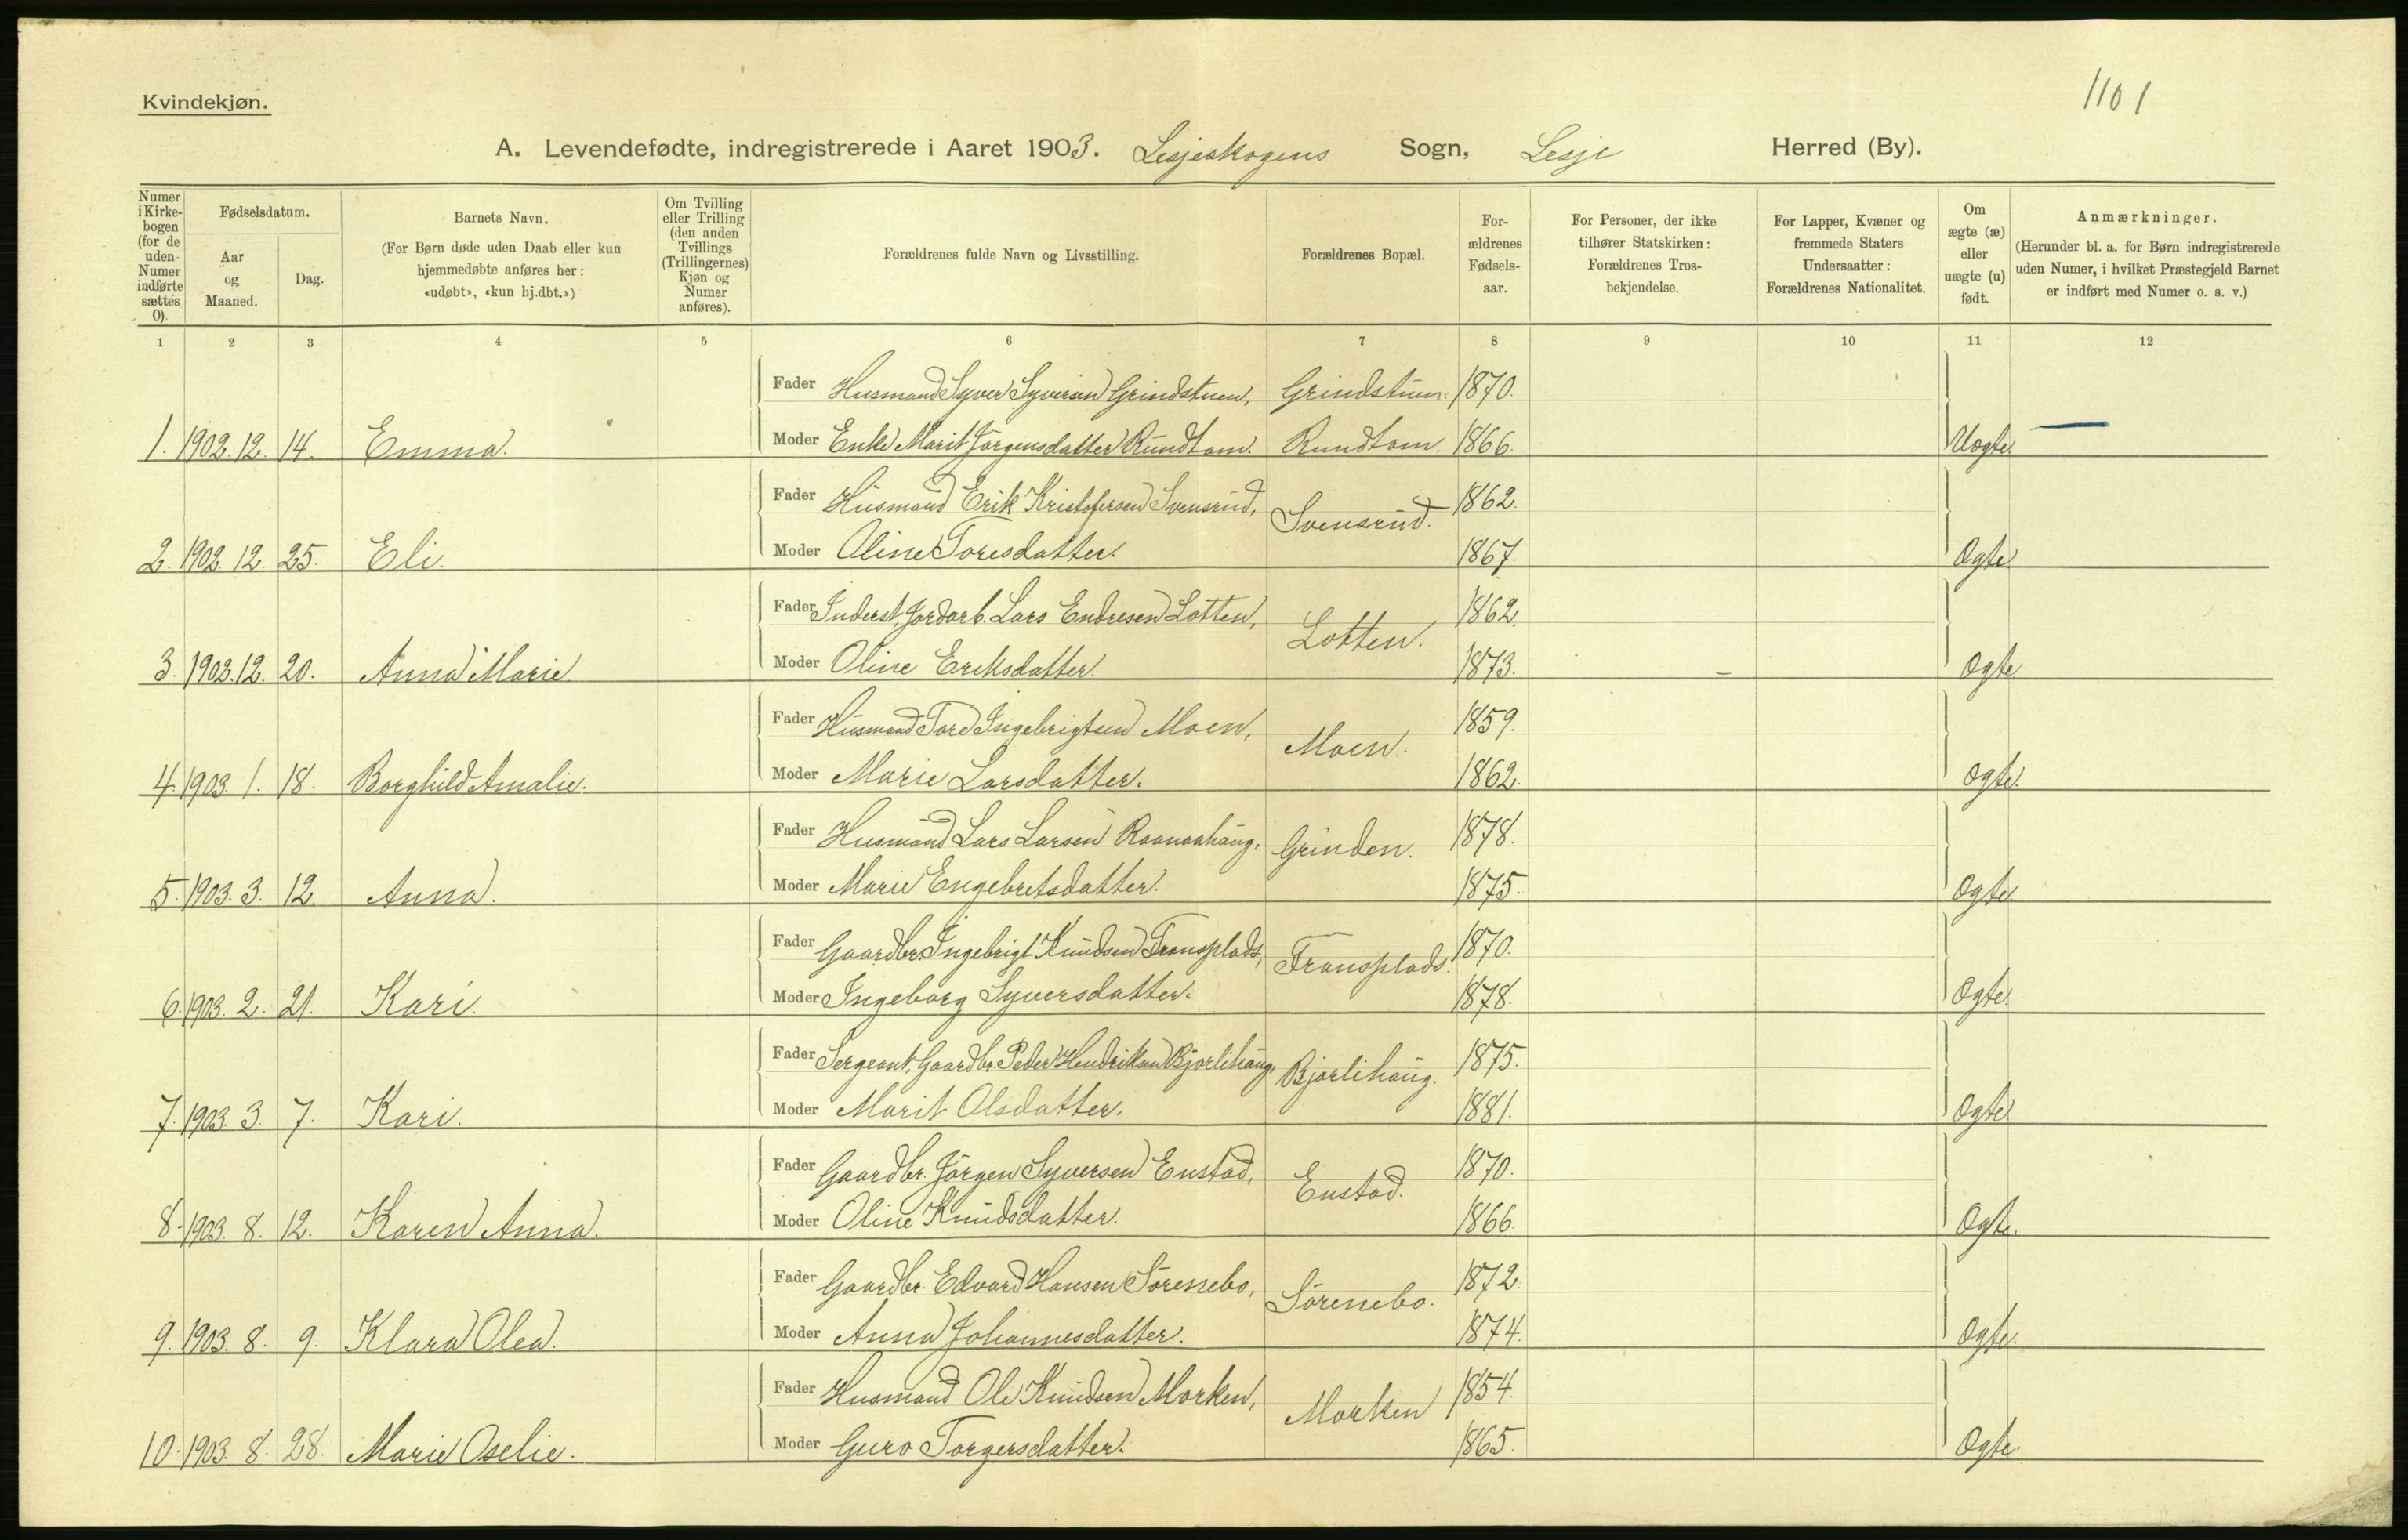 Kvindekjøn.
1101
A. Levendefødte, indregistrerede i Aaret 1903. Lesjeskogens Sogn, Lesje Herred (By).
Numer i Kirke-bogen (for de uden Numer indførte sættes 0).
Fødselsdatum.
Aar og Maaned.
Dag.
Barnets Navn.
(For Børn døde uden Daab eller kun hjemmedøbte anføres her: «udøbt», «kun hj.dbt.»)
Om Tvilling eller Trilling (den anden Tvillings (Trillingernes) Kjøn og Numer anføres).
Forældrenes fulde Navn og Livsstilling.
Forældrenes Bopæl.
For-ældrenes Fødsels-aar.
For Personer, der ikke tilhører Statskirken: Forældrenes Tros-bekjendelse.
For Lapper, Kvæner og fremmede Staters Undersaatter: Forældrenes Nationalitet.
Om ægte (æ) eller uægte (u) født.
Anmærkninger.
(Herunder bl. a. for Børn indregistrerede uden Numer, i hvilket Præstegjeld Barnet er indført med Numer o. s. v.)
1 2 3 4 5 6 7 8 9 10 11 12
Fader Husmand Syver Syversen Grindstuen, Grindstuen. 1870.
1. 1902. 12. 14. Emma. Moder Enke Marit Jörgensdatter Rundtom. Rundtom. 1866. Uægte.
Fader Husmand Erik Kristofersen Svensrud, Svensrud. 1862.
2. 1902. 12. 25. Eli. Moder Oline Toresdatter. 1867. Ægte
Fader Inderst, Jordarb. Lars Endresen Lotten, Lotten. 1862.
3. 1902. 12. 20. Anna Marie Moder Oline Eriksdatter. 1873. Ægte
Fader Husmand Tore Ingebrigtsen Moen, Moen. 1859.
4. 1903. 1. 18. Borghild Amalie. Moder Marie Larsdatter. 1862. Ægte.
Fader Husmand Lars Larsen Raanaahaug, Grinden. 1878.
5. 1903. 3. 12. Anna. Moder Marie Engebretsdatter. 1875. Ægte.
Fader Gaardbr. Ingebrigt Knudsen Transplads, Transplads. 1870.
6. 1903. 2. 21. Kari. Moder Ingeborg Syversdatter. 1878. Ægte.
Fader Sergeant, Gaardbr. Peder Hendriksen Bjorlihaug, Bjorlihaug. 1875.
7. 1903. 3. 7. Kari. Moder Marit Olsdatter. 1881. Ægte.
Fader Gaardbr. Jörgen Syversen Enstad, Enstad. 1870.
8. 1903. 8. 12. Karen Anna. Moder Oline Knudsdatter. 1866. Ægte.
Fader Gaardbr. Edvard Hansen Sörenebo, Sörenebo. 1872.
9. 1903. 8. 9. Klara Olea. Moder Anna Johannesdatter. 1874. Ægte.
Fader Husmand Ole Knudsen Morken, Morken 1854.
10. 1903. 8. 28. Marie Oselie. Moder Guro Torgersdatter. 1865. Ægte.